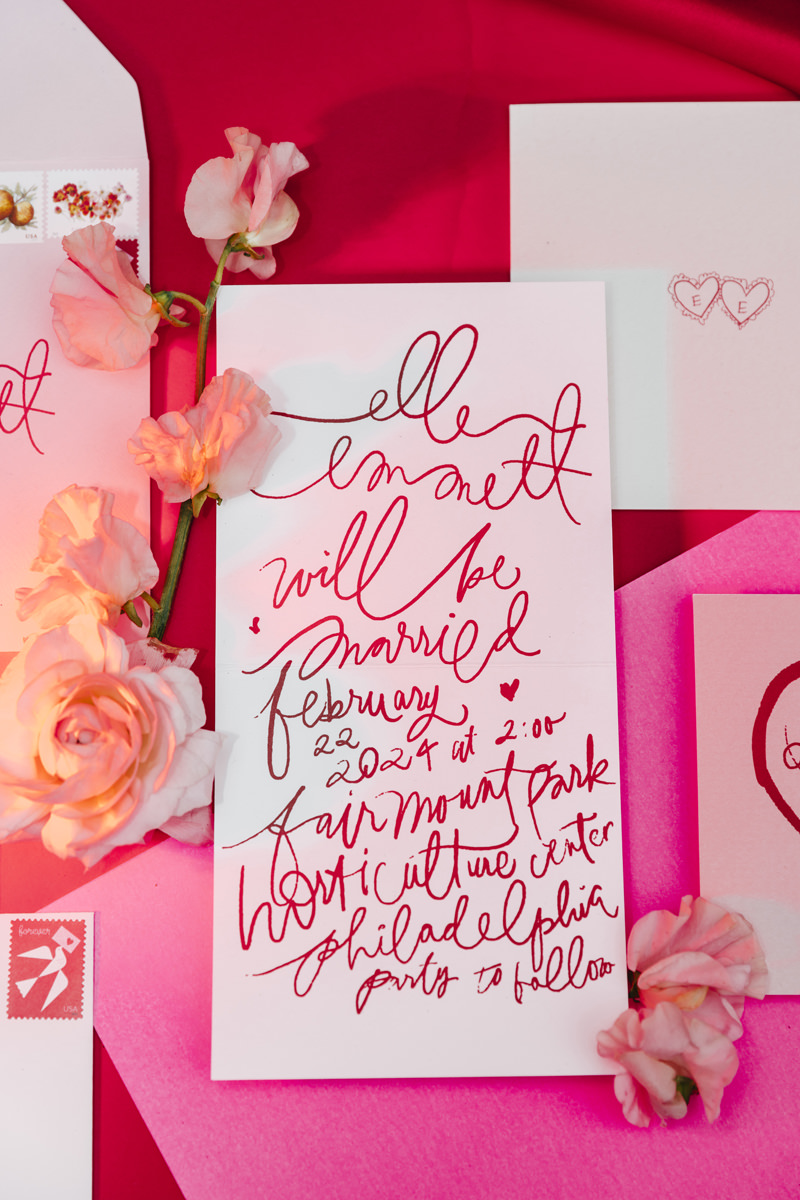 USA
E E
elle
emmett
will be
married
february
22
2024 at 2:00
fairmount park
horticulture center
philadelphia
party to follow
forever
USA